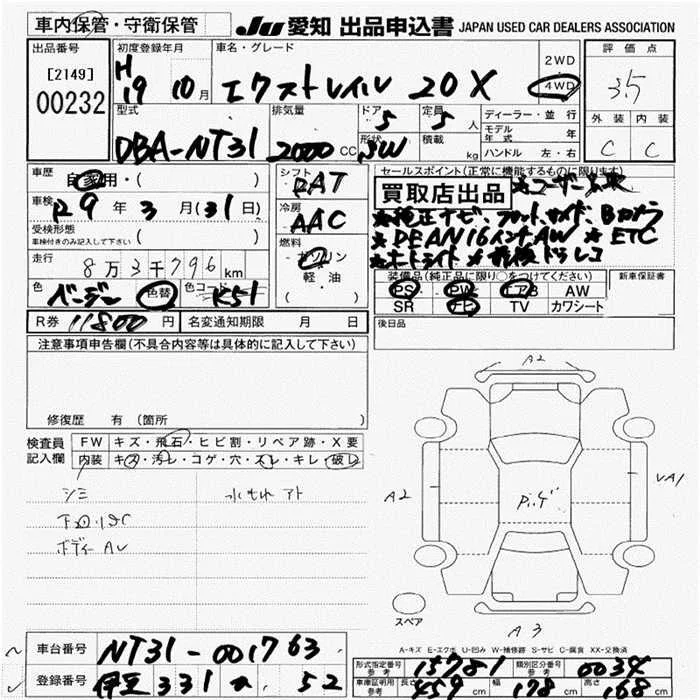 車内保管・守衛保管
JU 愛知 出品申込書 JAPAN USED CAR DEALERS ASSOCIATION
出品番号 初度登録年月 車名・グレード 2WD 4WD 評価点
[2149]
00232
H19 10月 エクストレイル 20X
3.5
型式 排気量 ドア 定員 ディーラー・並行 外装 内装
DBA-NT31 2000 CC 5 5 人
形状 積載 モデル年式 年
SW kg ハンドル 左・右 C C
車歴 自家用・( ) シフト セールスポイント(正常に機能するものに限ります)
FAT
買取店出品 ★ユーザー買取
車検 R9年 3月 (31日) 冷房
AAC
★純正ナビ、フロント、サイド、Bカメラ
受検形態 ( )
車検付きのみ記入して下さい
燃料 ★DEAN16インチAW ★ETC
走行 8万3千796km ガソリン 軽油
★オートライト ★前後ドラレコ
装備品(純正品に限り○をつけてください) 新車保証書
色 ベージュ 色替 色コード K51
PS PW エアB AW
SR ナビ TV カワシート
R券 11800円 名変通知期限 月 日
後日品
注意事項申告欄(不具合内容等は具体的に記入して下さい)
修復歴 有 (箇所 )
検査員記入欄
FW キズ・飛石・ヒビ割・リペア跡・X要
内装 キズ・汚レ・コゲ・穴・スレ・キレ・破レ
シミ 水もれアト
下回りSC
ボディーAU
A2
A2
VA1
A3
スペア
A-キズ E-エクボ U-凹み W-補修跡 S-サビ C-腐食 XX-交換済
車台番号 NT31-001763
登録番号 伊豆 331 52
形式指定番号 参考 15781 類別区分番号 参考 0034
車庫証明用 参考 長さ 459cm 幅 178cm 高さ 168cm